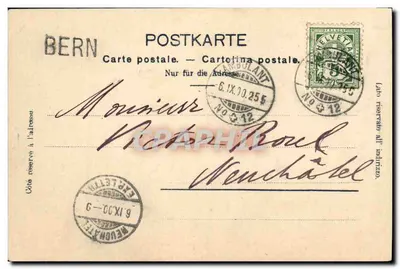 BERN
POSTKARTE
Carte postale. — Cartolina postale.
Nur für die Adresse
HELVETIA
5
AMBULANT
6.IX.00.25
No 12
AMBULANT
No 12
Côté réservé à l'adresse
Lato riservato all' indirizzo.
Monsieur
Neuchâtel
NEUCHÂTEL
6.IX.00.-9
EXP. LETTR.